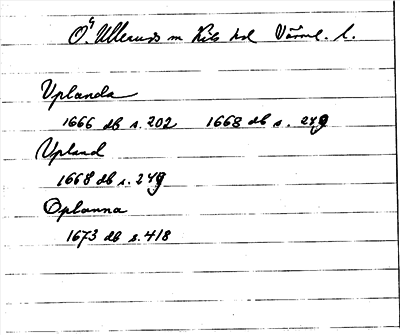 Ö. Ullerud sn Kils hd Värml. l.
Uplanda
1666 db s. 202 1668 db s. 249
Upland
1668 db s. 249
Oplanna
1673 db s. 418